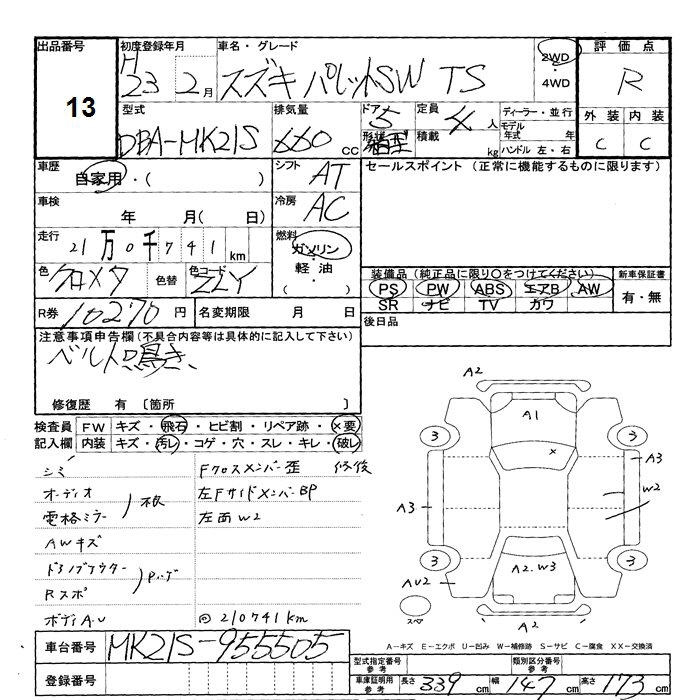 出品番号 初度登録年月 車名・グレード 評価点
13 H 23 2月 スズキ パレットSW TS 2WD ・ 4WD R
型式 排気量 ドア 定員 ディーラー・並行 外装 内装
DBA-MK21S 660 cc 5 形状 積載 4 人 kg モデル年式 年 ハンドル 左・右 C C
車歴 自家用・( ) シフト AT セールスポイント (正常に機能するものに限ります)
車検 年 月( 日) 冷房 AC
走行 21万0千741km 燃料 ガソリン・軽油・( )
色 クロメタ 色替 色コード ZLY 装備品 (純正品に限り○をつけてください) 新車保証書
PS PW ABS エアB AW 有・無
SR ナビ TV カワ
R券 10270円 名変期限 月 日 後日品
注意事項申告欄(不具合内容等は具体的に記入して下さい)
ベルト鳴き
修復歴 有〔箇所 〕
検査員 FW キズ・飛石・ヒビ割・リペア跡・×要
記入欄 内装 キズ・汚レ・コゲ・穴・スレ・キレ・破レ
シミ Fクロスメンバー歪 修後
オーディオ 左FサイドメンバーBP
電格ミラー 左面W2
AWキズ
ドアノブアウター
Rスポ
ボディAU @210741km
A2
A1
3 3
×
A3
W2
A3
3 3
A2.W3
AU2
スペ
A2
A-キズ E-エクボ U-凹み W-補修跡 S-サビ C-腐食 XX-交換済
車台番号 MK21S-955505
登録番号
型式指定番号 参考 類別区分番号 参考
車庫証明用 参考 長さ 339cm 幅 147cm 高さ 173cm